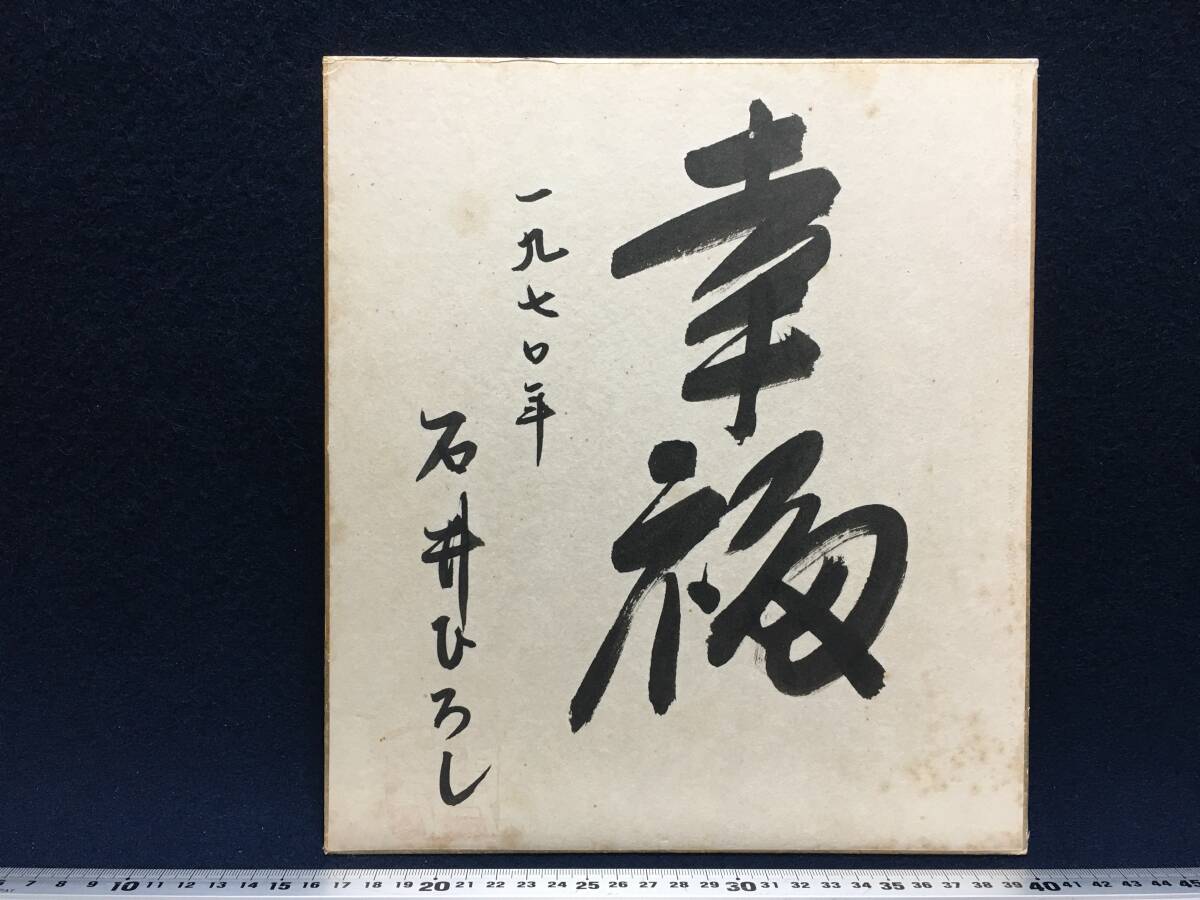 幸福
一九七〇年
石井ひろし
6 7 8 9 10 11 12 13 14 15 16 17 18 19 20 21 22 23 24 25 26 27 28 29 30 31 32 33 34 35 36 37 38 39 40 41 42 43 44 45